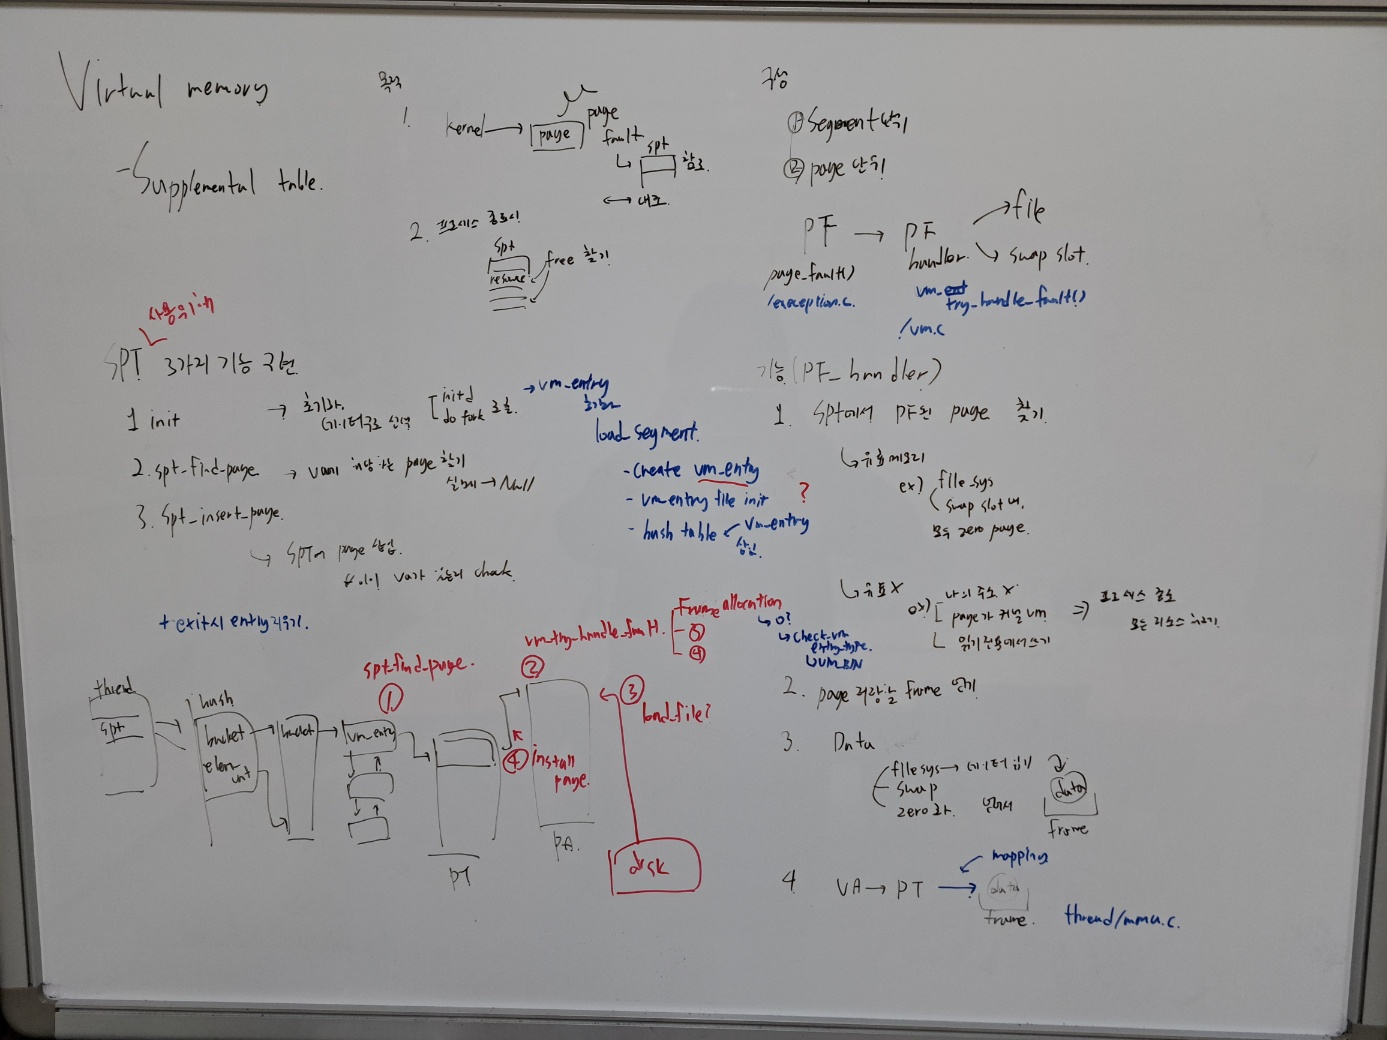 Virtual memory
- Supplemental table.
목적
1.
kernel → page
page
fault
spt
참조.
↔ 대조.
2. 프로세스 종료시
spt
resource
free 할거
구성
① Segment 단위
② page 단위
PF → PF
handler.
file
swap slot.
page_fault()
/exception.c.
vm_
try_handle_fault()
/vm.c
SPT 3가지 기능 구현.
1 init → 초기화.
데이터구조 선택
[ initd
do fork 호출.
→ vm_entry
초기화
2. spt_find_page → va에 해당하는 page 찾기
실패시 → Null
3. spt_insert_page.
↳ SPT에 page 삽입.
check.
+ exit시 entry 지우기.
load segment.
- create vm_entry
- vm_entry file init ?
- hash table ← vm_entry
삽입.
기능 (PF_handler)
1. spt에서 PF된 page 찾기.
↳ 유효메모리
ex) file_sys
swap slot
모두 zero page.
↳ 유효 X
ex)
page가 커널 vm
읽기전용에서 쓰기
⇒ 프로세스 종료
모든 리소스
2. page 저장할 frame 얻기
3. Data
filesys → 데이터 읽기
swap
zero화
data
frame
4. VA → PT → data
mapping
frame.
thread/mmu.c.
spt_find_page.
①
vm_try_handle_fault.
②
Frame allocation
- ③
- ④
↳ 0?
↳ check_vm
entry_type.
↳ VM_BIN
③
load_file?
④ install
page.
disk
thread
spt
hash
bucket
elem
cnt
bucket
vm_entry
PT
PA.